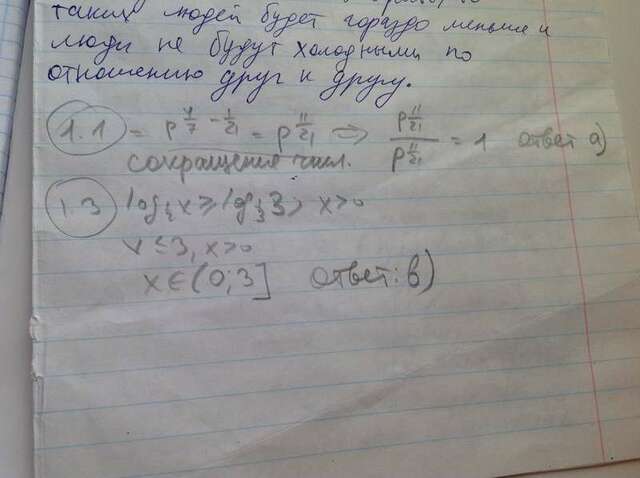 таких людей будет гораздо меньше и
люди не будут холодными по
отношению друг к другу.
1.1 = p^{4/7 - 1/21} = p^{11/21} ⇒ p^{11/21} / p^{11/21} = 1 ответ а)
сокращение числ.
1.3 x>0
x ≤ 3, x>0
x ∈ (0; 3] ответ: в)